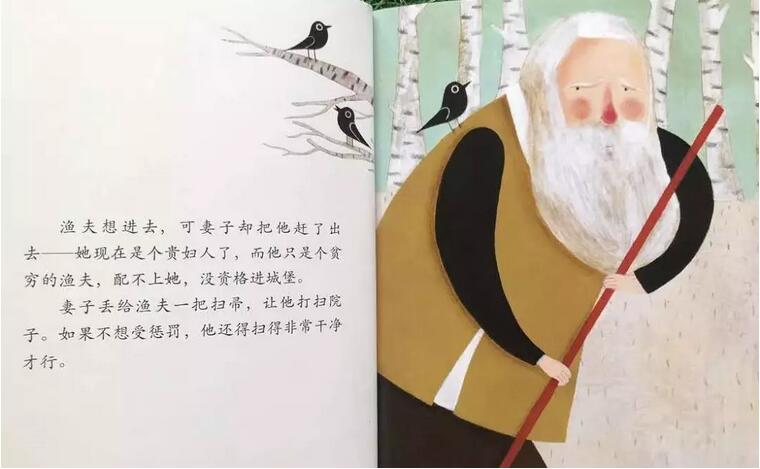 渔夫想进去，可妻子却把他赶了出
去——她现在是个贵妇人了，而他只是个贫
穷的渔夫，配不上她，没资格进城堡。
妻子丢给渔夫一把扫帚，让他打扫院
子。如果不想受惩罚，他还得扫得非常干净
才行。